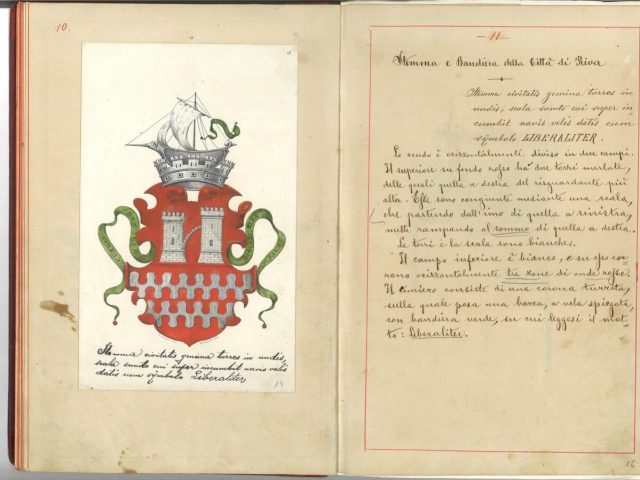 10.
Stemma civitatis gemina turres in undis,
scala sunto cui super incumbit navis velis
datis cum symbolo Liberaliter
14
-11-
Stemma e Bandiera della Città di Riva.
Stemma civitatis gemina turres in
undis, scala sunto cui super in
cumbit navis velis datis cum
symbolo LIBERALITER.
Lo scudo è orizzontalmente diviso in due campi.
Il superiore su fondo rosso ha due torri merlate,
delle quali quella a destra del risguardante più
alta. Esse sono congiunte mediante una scala,
che partendo dall'imo di quella a sinistra,
mette rampando al sommo di quella a destra.
Le torri e la scala sono bianche.
Il campo inferiore è bianco, e su esso cor-
rono orizzontalmente tre zone di onde rosse.
Il cimiero consiste di una corona turrita,
sulla quale posa una barca, a vela spiegata,
con bandiera verde, su cui leggesi il mot-
to: Liberaliter.
16